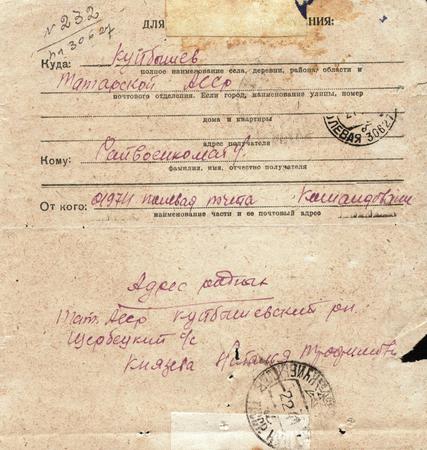 N 232
ДЛЯ НИЯ:
Куда: Куйбышев
полное наименование села, деревни, района, области и
Татарской АССР
почтового отделения. Если город, наименование улицы, номер
дома и квартиры
адрес получателя
Кому: Райвоенкомату
фамилия, имя, отчество получателя
От кого: 01974 полевая почта Командования
наименование части и ее почтовый адрес
ЛЕВАЯ
Адрес родных
Тат. Асср Куйбышевский рн.
Щербецкий с/с
Князева Наталья